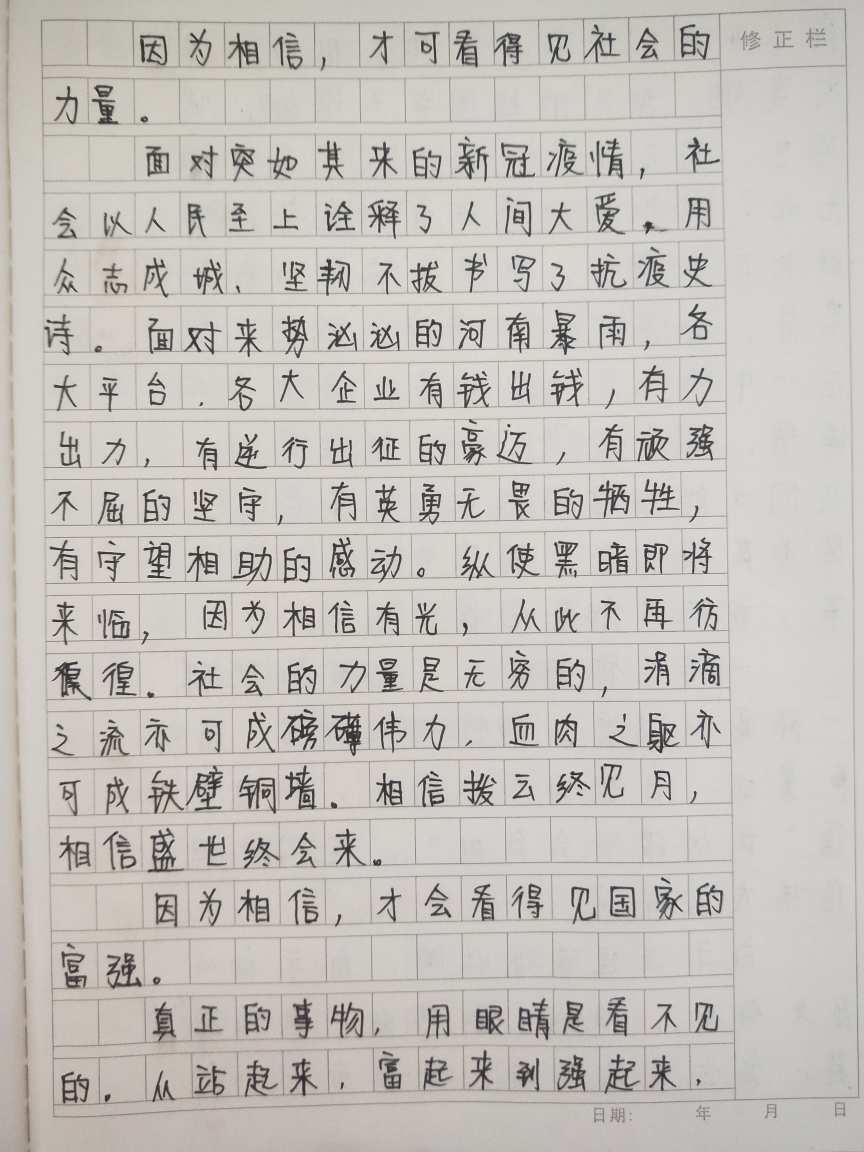 因为相信，才可看得见社会的
修正栏
力量。
面对突如其来的新冠疫情，社
会以人民至上诠释了人间大爱，用
众志成城、坚韧不拔书写了抗疫史
诗。面对来势汹汹的河南暴雨，各
大平台、各大企业有钱出钱，有力
出力，有逆行出征的豪迈，有顽强
不屈的坚守，有英勇无畏的牺牲，
有守望相助的感动。纵使黑暗即将
来临，因为相信有光，从此不再彷
徨。社会的力量是无穷的，涓滴
之流亦可成磅礴伟力，血肉之躯亦
可成铁壁铜墙。相信拨云终见月，
相信盛世终会来。
因为相信，才会看得见国家的
富强。
真正的事物，用眼睛是看不见
的。从站起来，富起来到强起来，
日期： 年 月 日